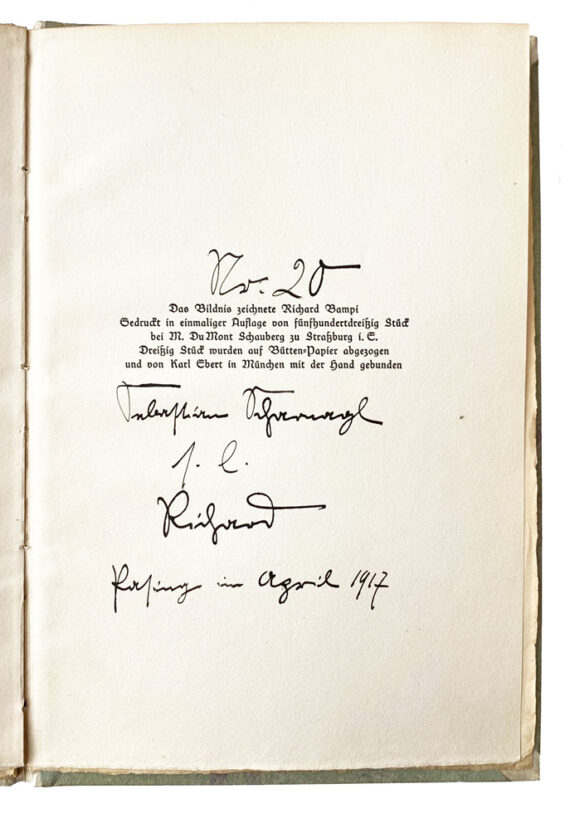 Nr. 20
Das Bildnis zeichnete Richard Bampi
Gedruckt in einmaliger Auflage von fünfhundertdreißig Stück
bei M. DuMont Schauberg zu Straßburg i. E.
Dreißig Stück wurden auf Bütten-Papier abgezogen
und von Karl Ebert in München mit der Hand gebunden
Sebastian Scharnagl
s. l.
Richard
Pasing im April 1917